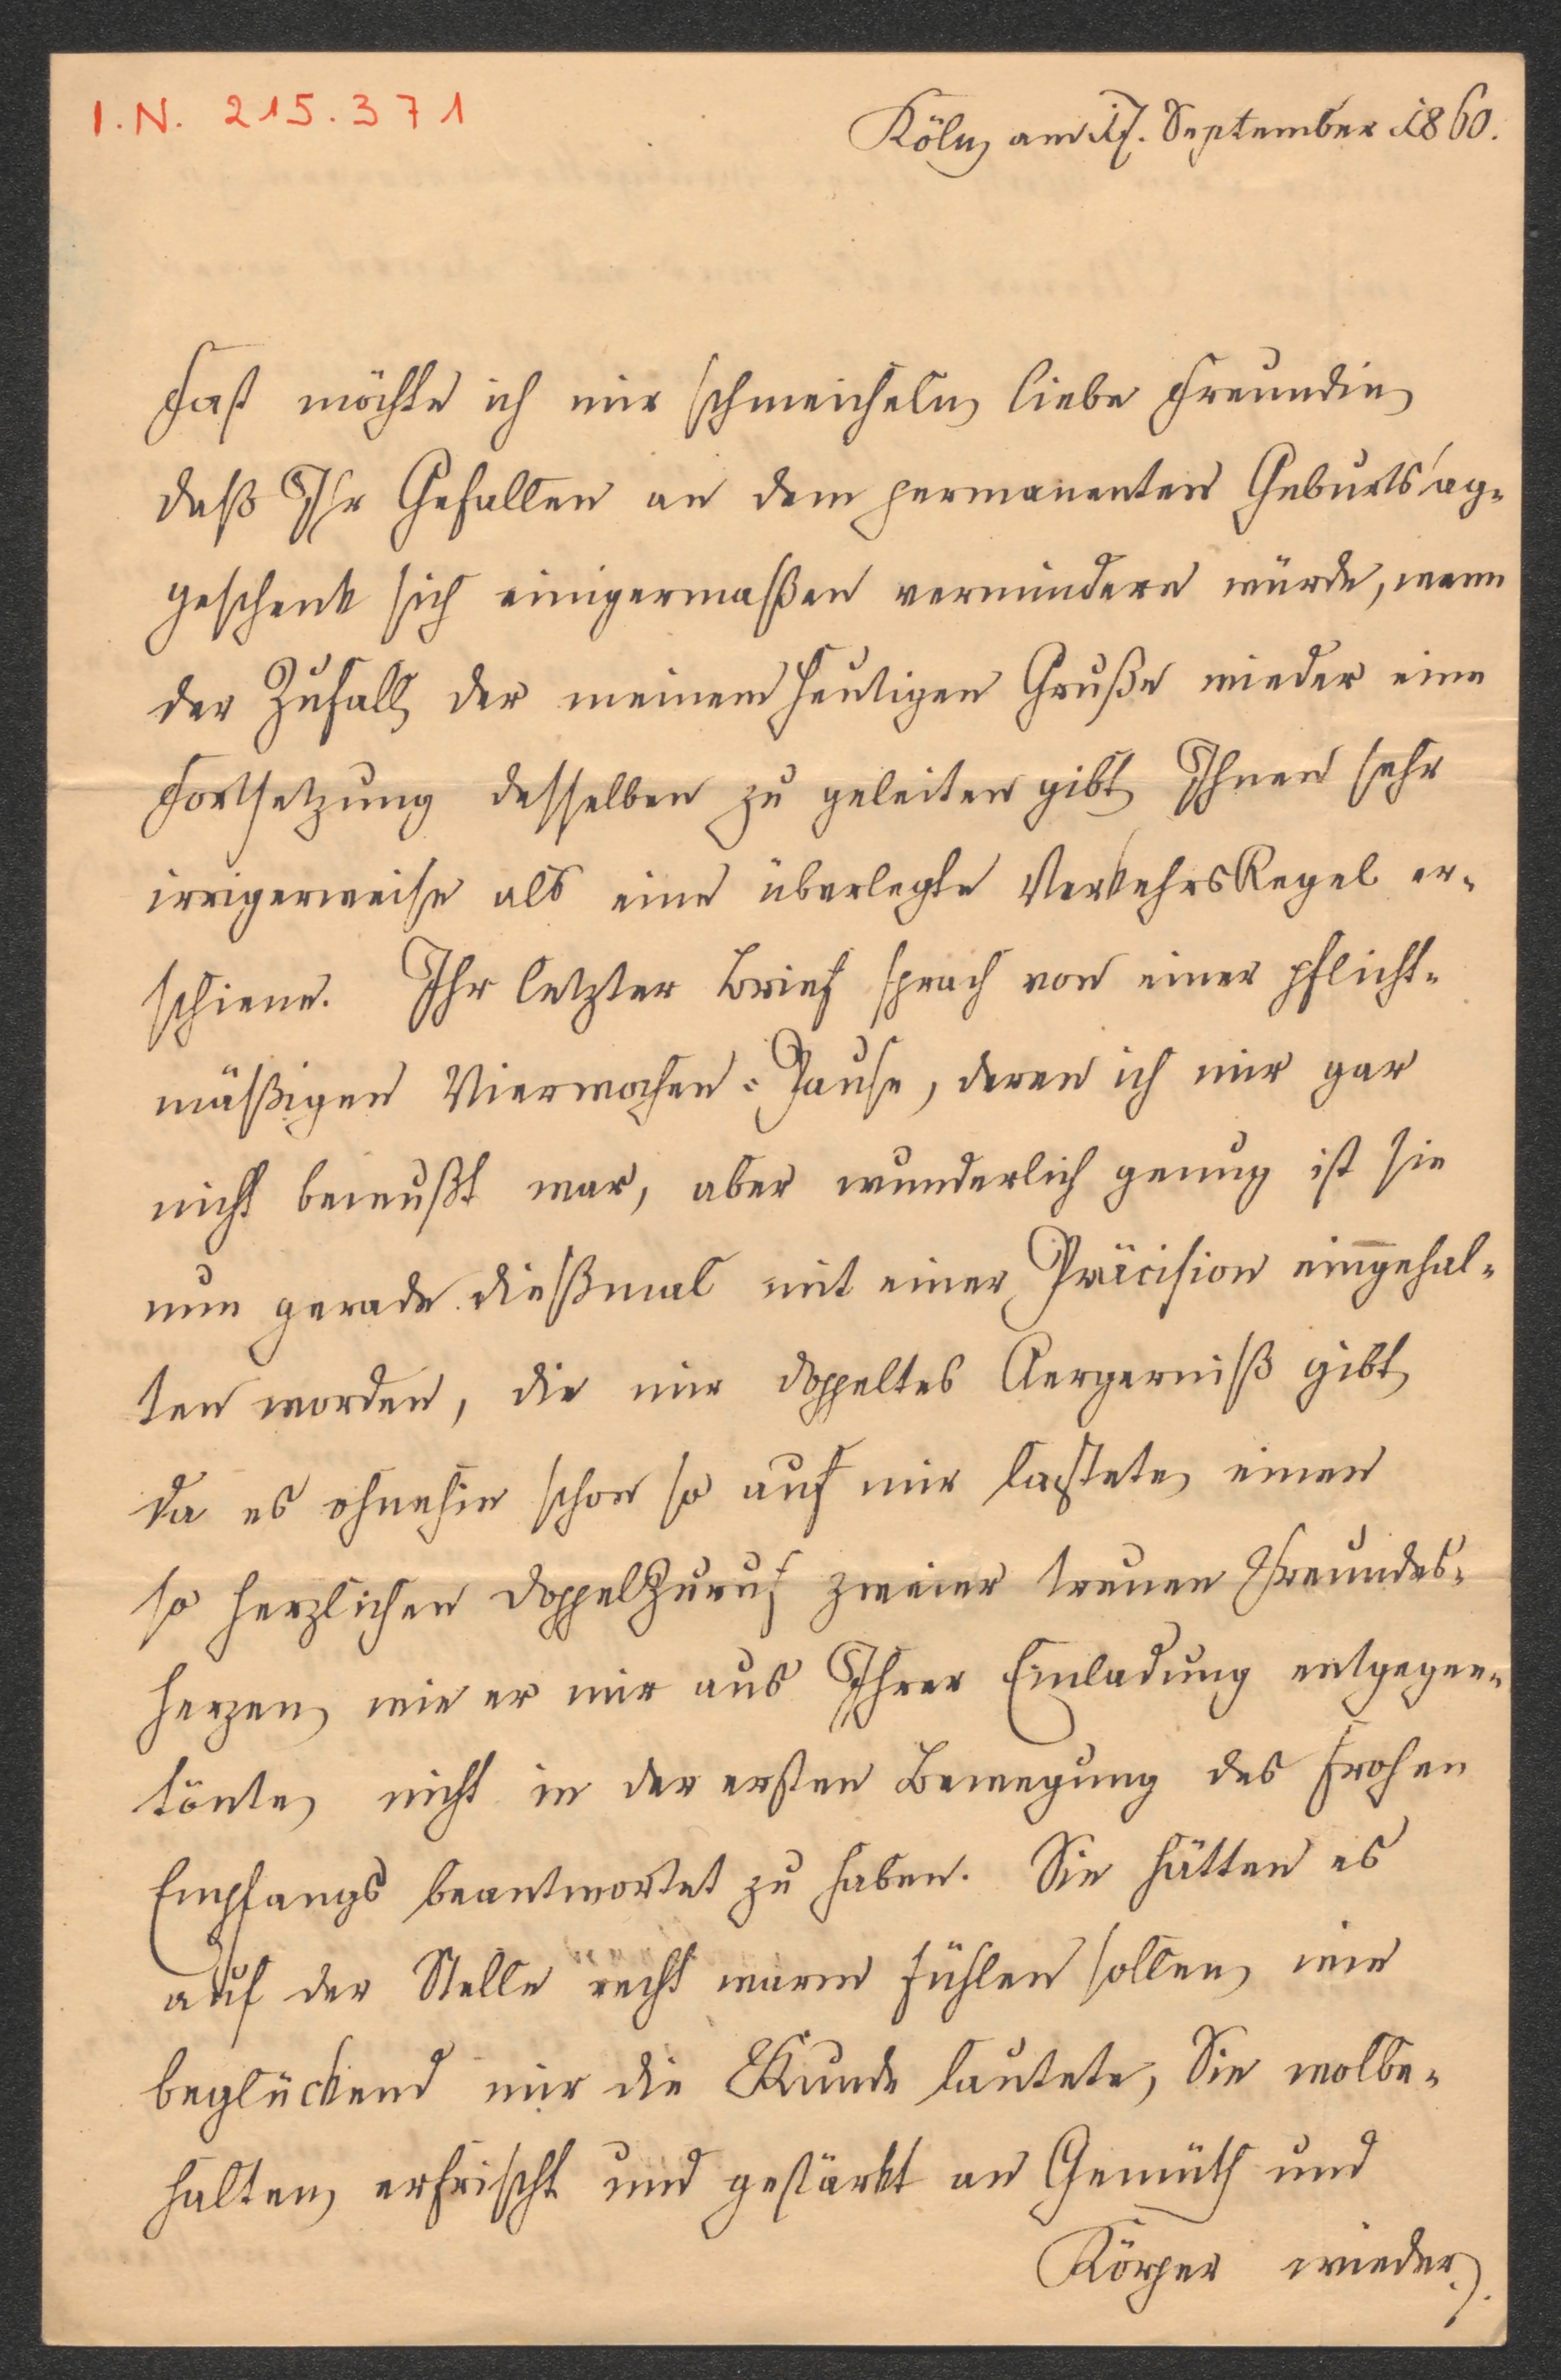 I.N. 215.371
Köln, am 17. September 1860.
Fast möchte ich mir schmeicheln, liebe Freundin,
daß Ihr Gefallen an dem permanenten Geburtstag-
geschenk sich einigermaßen vermindern würde, wenn
der Zufall, der meinem heutigen Gruße wieder eine
Fortsetzung desselben zu geleiten gibt, Ihnen sehr
irrigerweise als eine überlegte Verkehrsregel er-
schiene. Ihr letzter Brief sprach von einer pflicht-
mäßigen Vierwochen-Pause, deren ich mir gar
nicht bewußt war, aber wunderlich genug ist sie
nun gerade dießmal mit einer Präcision eingehal-
ten worden, die mir doppeltes Aergerniß gibt,
da es ohnehin schon so auf mir lastete, einen
so herzlichen Doppelzuruf zweier treuen Freundes-
herzen, wie er mir aus Ihrer Einladung entgegen-
tönte, nicht in der ersten Bewegung des frohen
Empfangs beantwortet zu haben. Sie hätten es
auf der Stelle recht warm fühlen sollen, wie
beglückend mir die Kunde lautete, Sie wolbe-
halten, erfrischt und gestärkt an Gemüth und
Körper wieder